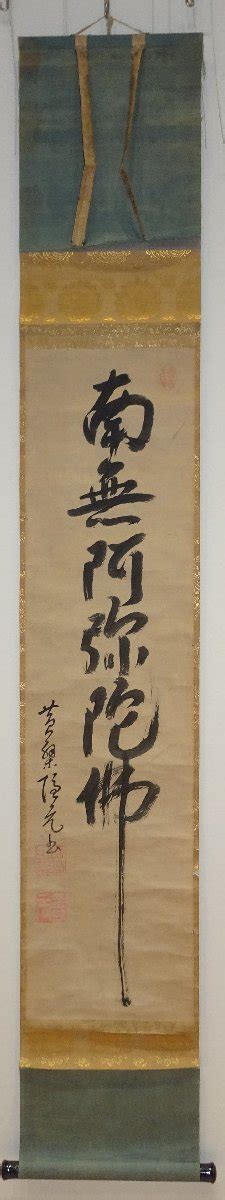 南無阿弥陀佛
黄檗隠元書